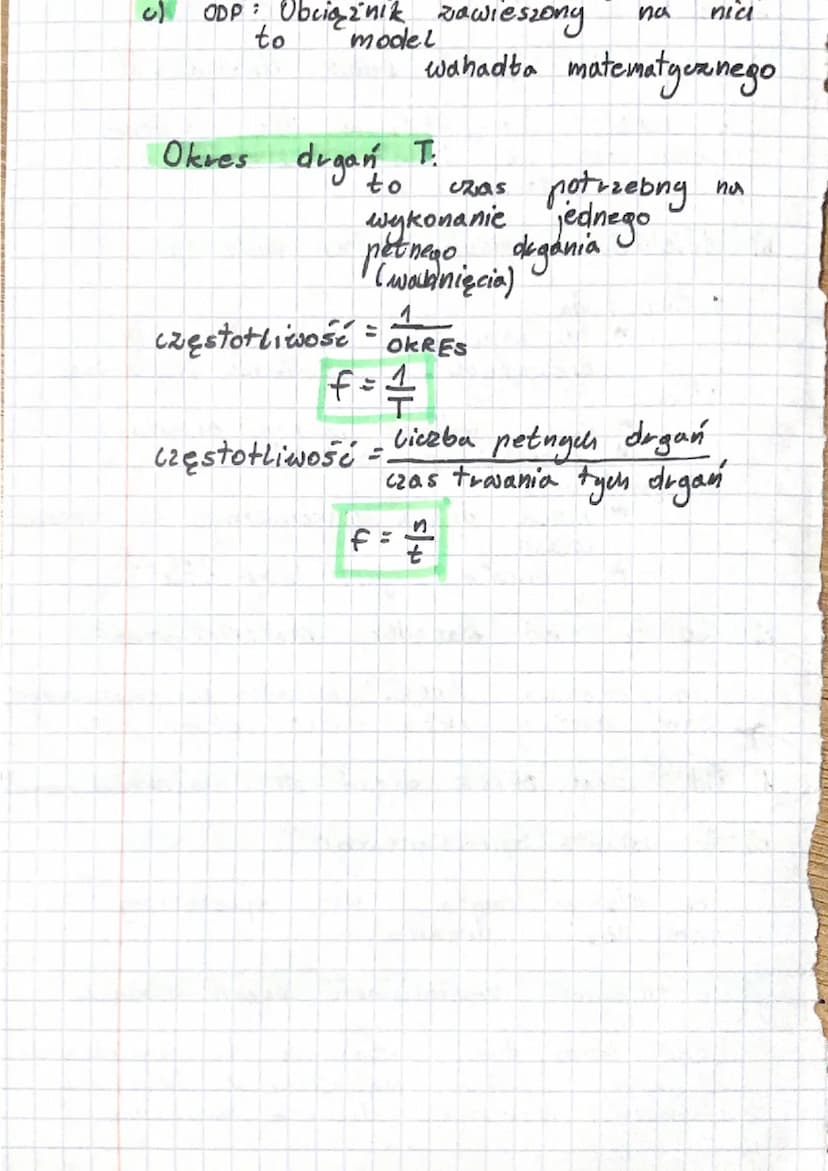 c) ODP: Obciążnik zawieszony na nici
to model
wahadła matematycznego
Okres drgań T.
to czas potrzebny na
wykonanie jednego
pełnego drgania
(wahnięcia)
częstotliwość = 1/OKRES
f = 1/T
częstotliwość = liczba pełnych drgań/czas trwania tych drgań
f = n/t